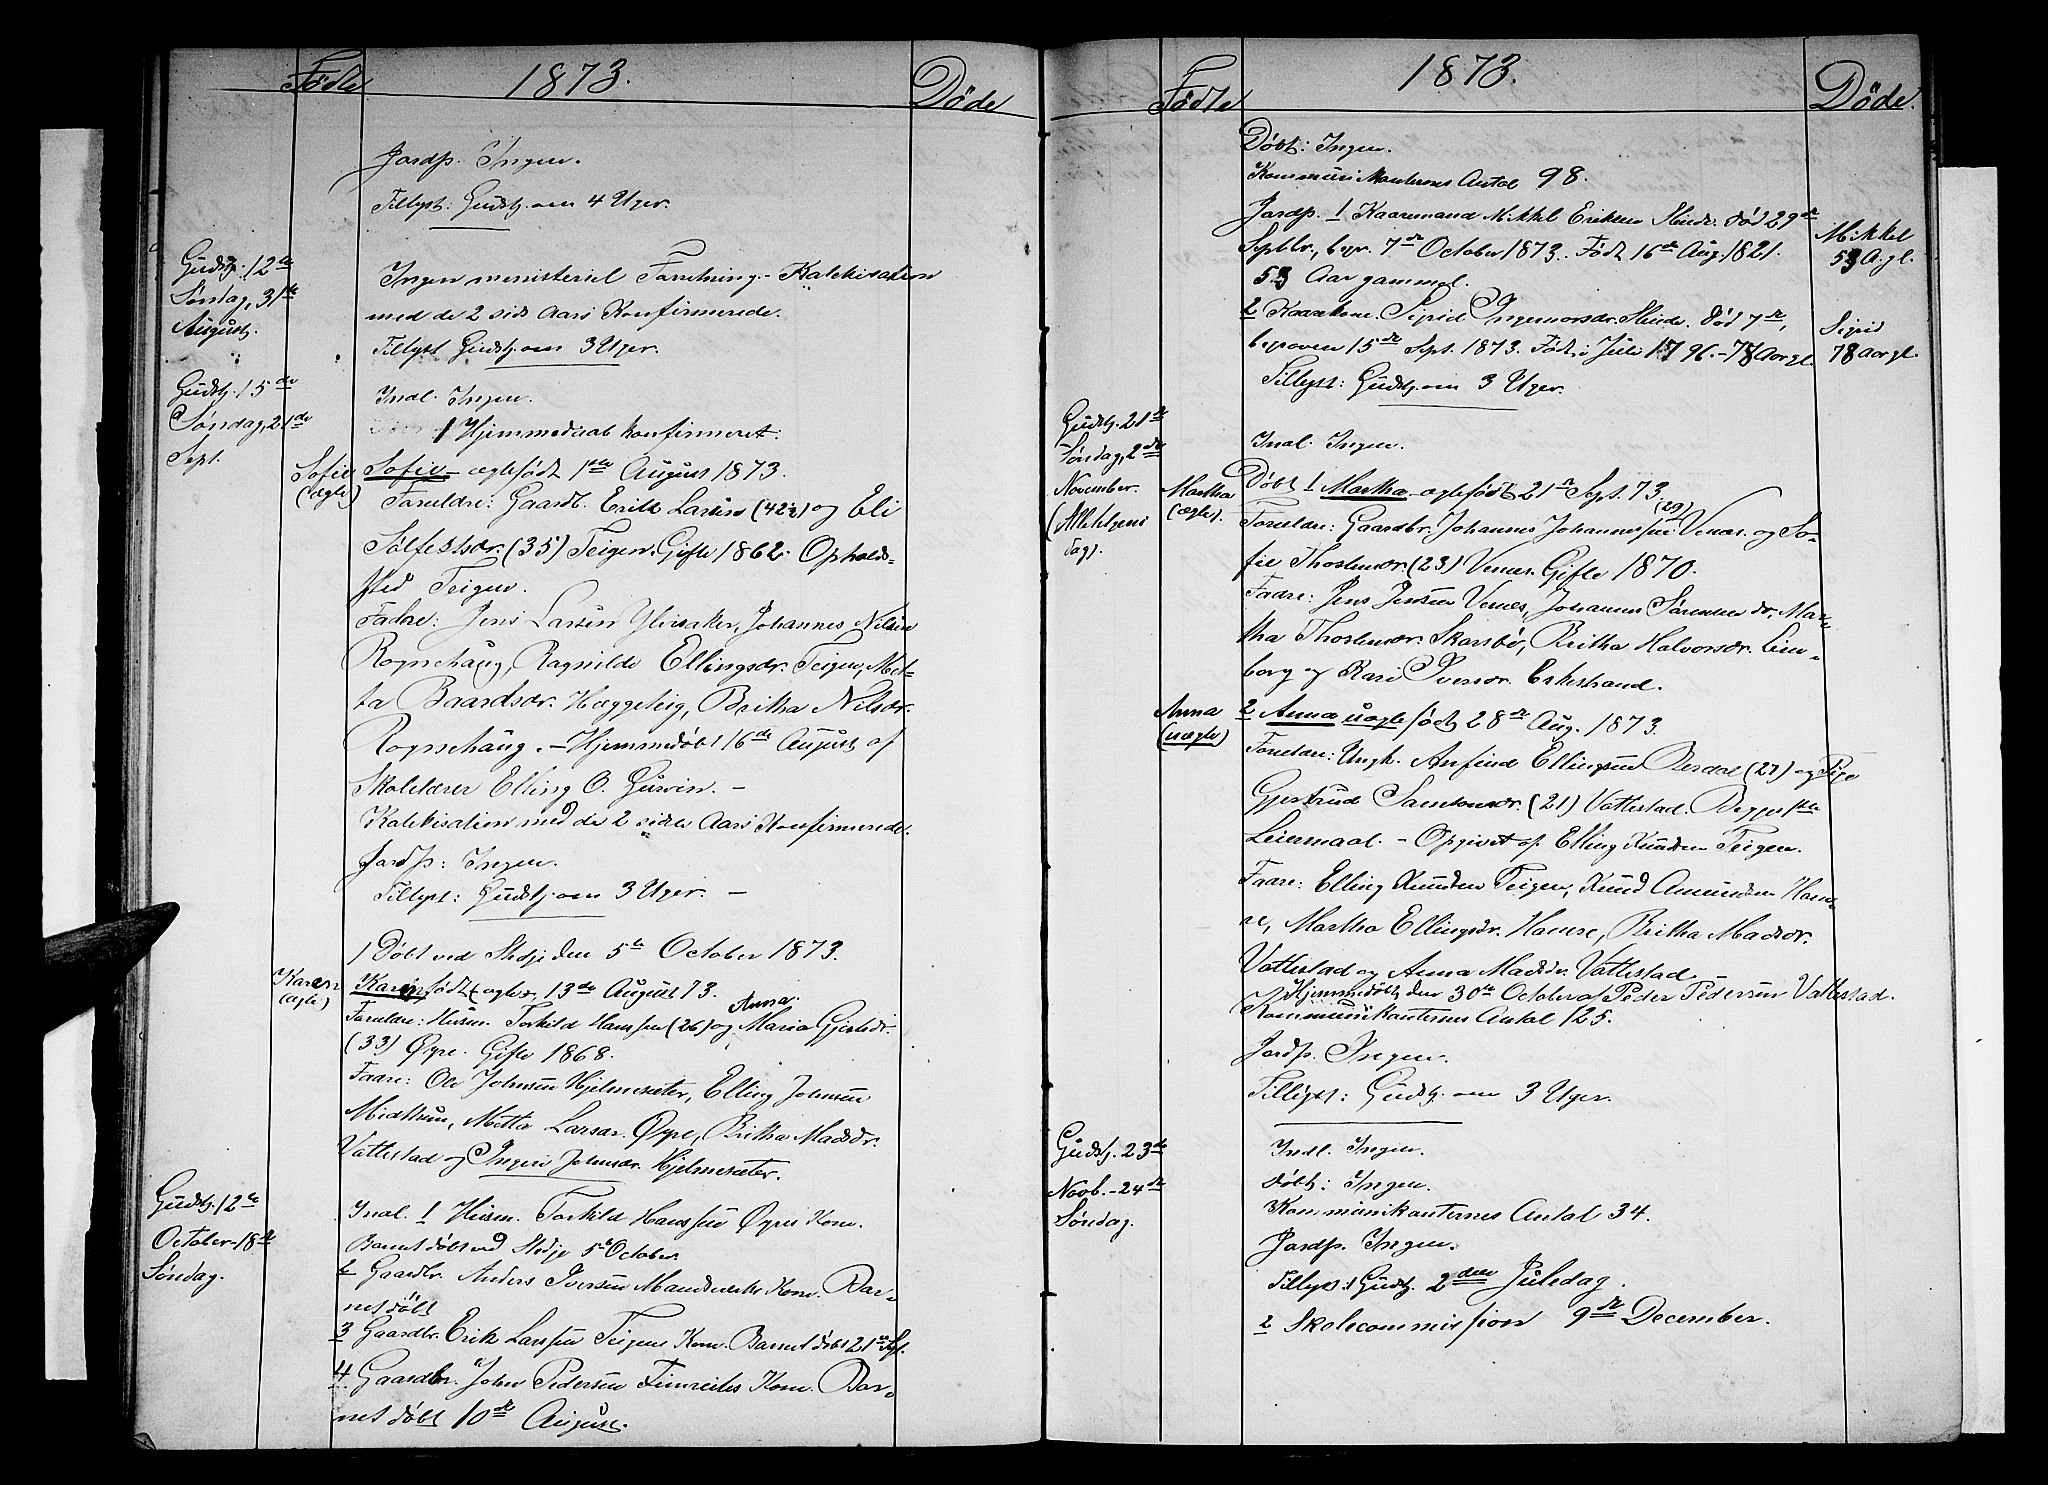 Fødte
1873.
Døde
Jordp. Ingen.
Tillyst: Gudstj. om 4 Uger.
Gudstj. 12te
Søndag, 31te
August.
Ingen ministeriel Forretning. - Katekisation
med de 2 sidste Aars Konfirmerede.
Tillyst Gudstj. om 3 Uger.
Gudstj. 15de
Søndag, 21de
Sept.
Indl. Ingen.
1 Hjemmedaab konfirmeret:
Sofie
(ægte)
Sofie - ægtefødt 1ste August 1873.
Forældre: Gaardb. Erik Larsen (42½) og Eli
Sølfestsdr. (35) Teigen. Gifte 1862. Opholds-
sted Teigen.
Faddre: Jens Larsen Ylvisaker, Johannes Nilsen
Rognehaug, Ragnilde Ellingsdr. Teigen, Met-
ta Baardsdr. Hæggeteig, Britha Nilsdr.
Rognehaug. - Hjemmedøbt 16de August af
Skolelærer Elling O. Gurvin. -
Katekisation med de 2 sidste Aars Konfirmerede.
Jordp: Ingen.
Tillyst: Gudstj. om 3 Uger. -
1 Døbt ved Stedje den 5te October 1873.
Karen
(ægte)
Karen født (ægte), 13de August 73.
Forældre: Husm. Torkild Hanssen (26) og Anna Maria Gjertsdr.
(33) Øyre. Gifte 1868.
Faddre: Ole Johnsen Hjelmesæter, Elling Johnsen
Midttun, Metta Larsdr. Øyre, Britha Madsdr.
Vattestad og Ingeri Johnsdr. Hjelmesæter.
Gudstj. 12te
October - 18de
Søndag.
Indl. 1 Husm. Torkild Hanssen Øyres Kone.
Barnet døbt ved Stedje 5te October
2 Gaardbr. Anders Iversen Kone. Bar-
net døbt
3 Gaardbr. Erik Larssen Teigens Kone. Barnet døbt 21de Sept.
4 Gaardbr. John Pedersen Fimreites Kone. Bar-
net døbt 10de August.
Fødte
1873.
Døde.
Døbt: Ingen.
Kommunikanternes Antal 98.
Jordp. 1 Kaaremand Mikkel Eriksen Slinde. død 29de
Septbr., begr. 7de October 1873. Født 16de Aug. 1821.
53 Aar gammel.
Mikkel
53 A. gl.
2 Kaarekone. Sigrid Ingemorsdr. Slinde. Død 7de,
begraven 15de Sept. 1873. Født i Juli 1796. - 78 Aar gl.
Sigrid
78 Aar gl.
Tillyst: Gudstj. om 3 Uger.
Gudstj. 21de
Søndag, 2den
November.
(Allehelgens
dag).
Indl. Ingen.
Martha
(ægte).
Døbt 1 Martha - ægtefødt 21de Sept. 73.
Forældre: Gaardbr. Johannes Johannessen (29) Venæs. og So-
fie Thorstensdr. (23) Venæs. Gifte 1870.
Faddre: Jens Jensen Venæs, Johannes Sørensen do, Mar-
tha Thorstensdr. Skarsbø, Britha Halvorsdr. Lem-
borg og Kari Iversdr. Eskestrand.
Anna
(uægte)
2 Anna uægtefødt 28de Aug. 1873.
Forældre: Ungk. Anfind Ellingsen (27) og Pige
Gjertrud Samsonsdr. (21) Vattestad. Begges 1ste
Leiermaal. - Opgivet af Elling Knudsen Teigen.
Faddre: Elling Knudsen Teigen, Knud Amundsen Ham-
re, Martha Ellingsdr. Hamre, Britha Madsdr.
Vattestad og Anna Madsdr. Vattestad
Hjemmedøbt den 30te October af Peder Pedersen Vattestad.
Kommunikanternes Antal 125.
Jordp. Ingen.
Tillyst: Gudstj. om 3 Uger.
Gudstj. 23de
Novb. - 24de
Søndag.
Indl. Ingen.
Døbt: Ingen.
Kommunikanternes Antal 34.
Jordp. Ingen.
Tillyst: 1 Gudstj. 2den Juledag.
2 Skolecommission 9de December.